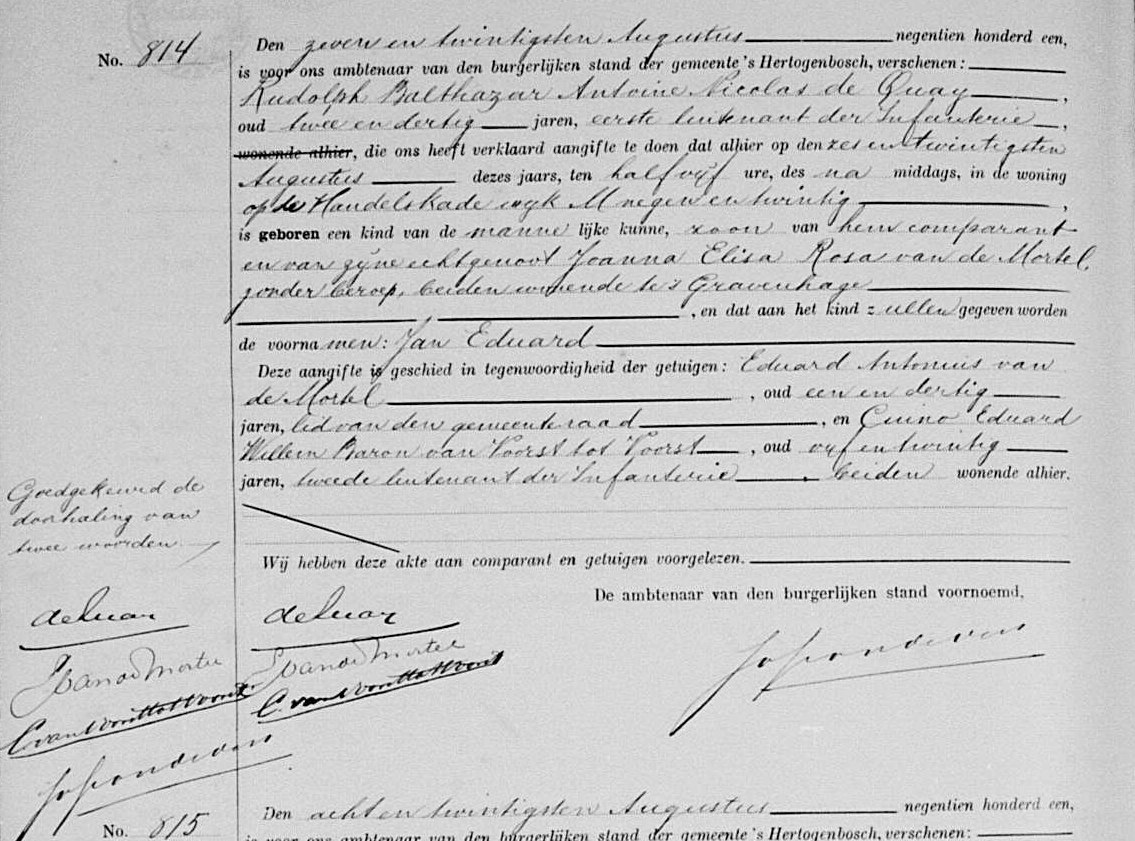 No. 814
Den zeven en twintigsten Augustus negentien honderd een,
is voor ons ambtenaar van den burgerlijken stand der gemeente 's Hertogenbosch, verschenen:
Rudolph Balthazar Antoine Nicolas de Quay,
oud twee en dertig jaren, eerste luitenant der Infanterie,
wonende alhier, die ons heeft verklaard aangifte te doen dat alhier op den zes en twintigsten
Augustus dezes jaars, ten half vijf ure, des na middags, in de woning
op de Handelskade wijk M negen en twintig,
is geboren een kind van de manne lijke kunne, zoon van hem comparant
en van zijne echtgenoot Joanna Elisa Rosa van de Mortel,
zonder beroep, beiden wonende te 's Gravenhage
, en dat aan het kind zullen gegeven worden
de voorna men: Jan Eduard
Deze aangifte is geschied in tegenwoordigheid der getuigen: Eduard Antonius van
de Mortel, oud een en dertig
jaren, lid van den gemeenteraad, en Cuno Eduard
Willem Baron van Voorst tot Voorst, oud vijf en twintig
jaren, tweede luitenant der Infanterie, beiden wonende alhier.
Goedgekeurd de
doorhaling van
twee woorden.
Wij hebben deze akte aan comparant en getuigen voorgelezen.
De ambtenaar van den burgerlijken stand voornoemd,
de Quay de Quay
van de Mortel van de Mortel
C. van Voorst tot Voorst C. van Voorst tot Voorst
No. 815
Den acht en twintigsten Augustus negentien honderd een,
is voor ons ambtenaar van den burgerlijken stand der gemeente 's Hertogenbosch, verschenen: